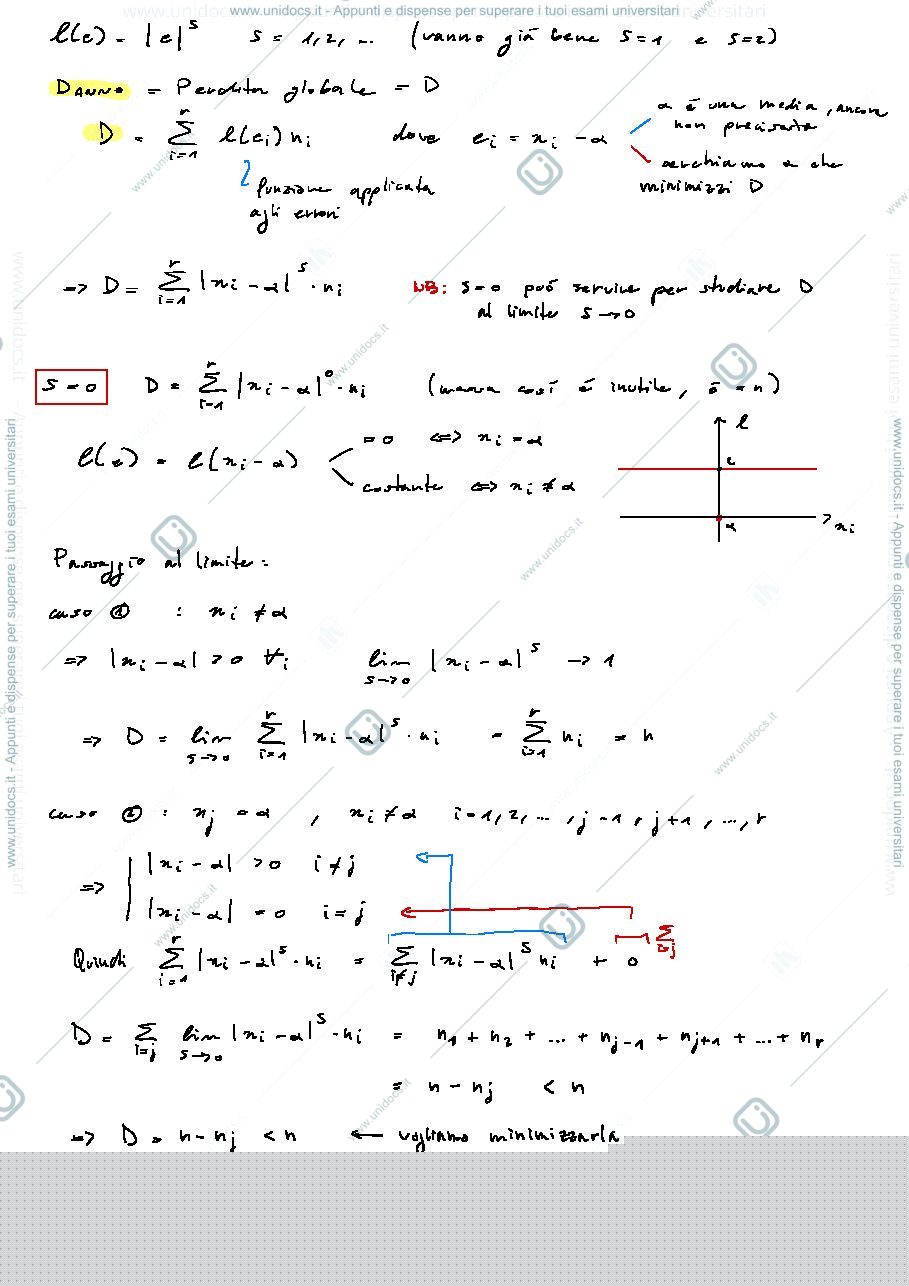 www.unidocs.it - Appunti e dispense per superare i tuoi esami universitari
l(e) = |e|^s   s = 1,2,...   (vanno già bene s=1 e s=2)
DANNO = Perdita globale = D
D = Σ_{i=1}^{r} l(e_i) n_i   dove   e_i = x_i - α
α è una media, ancora
non precisata
cerchiamo α che
minimizzi D
funzione applicata
agli errori
=> D = Σ_{i=1}^{r} |x_i - α|^s · n_i   NB: s=0 può servire per studiare D
al limite s → 0
s = 0   D = Σ_{i=1}^{r} |x_i - α|^0 · n_i   (ma così è inutile, è = n)
l(e) = l(x_i - α)
= 0 <=> x_i = α
costante <=> x_i ≠ α
l
c
α
x_i
Passaggio al limite:
caso ① : x_i ≠ α
=> |x_i - α| > 0 ∀i   lim_{s→0} |x_i - α|^s → 1
=> D = lim_{s→0} Σ_{i=1}^{r} |x_i - α|^s · n_i = Σ_{i=1}^{r} n_i = n
caso ② : x_j = α , x_i ≠ α   i = 1, 2, ..., j-1, j+1, ..., r
=> |x_i - α| > 0   i ≠ j
|x_i - α| = 0   i = j
Σ_{i=j}
Quindi Σ_{i=1}^{r} |x_i - α|^s · n_i = Σ_{i≠j} |x_i - α|^s n_i + 0
D = Σ_{i=j} lim_{s→0} |x_i - α|^s · n_i = n_1 + n_2 + ... + n_{j-1} + n_{j+1} + ... + n_r
= n - n_j < n
=> D = n - n_j < n ← vogliamo minimizzarla